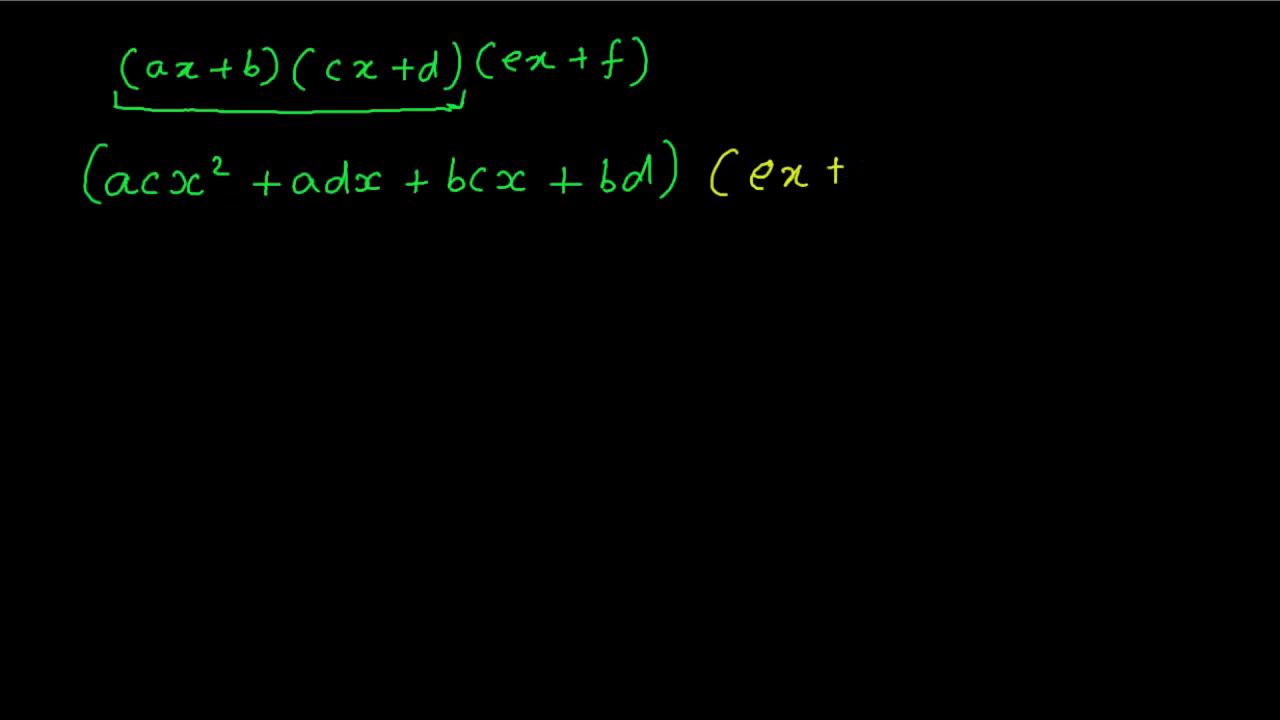 (ax+b)(cx+d)(ex+f)
(acx² + adx + bcx + bd) (ex +